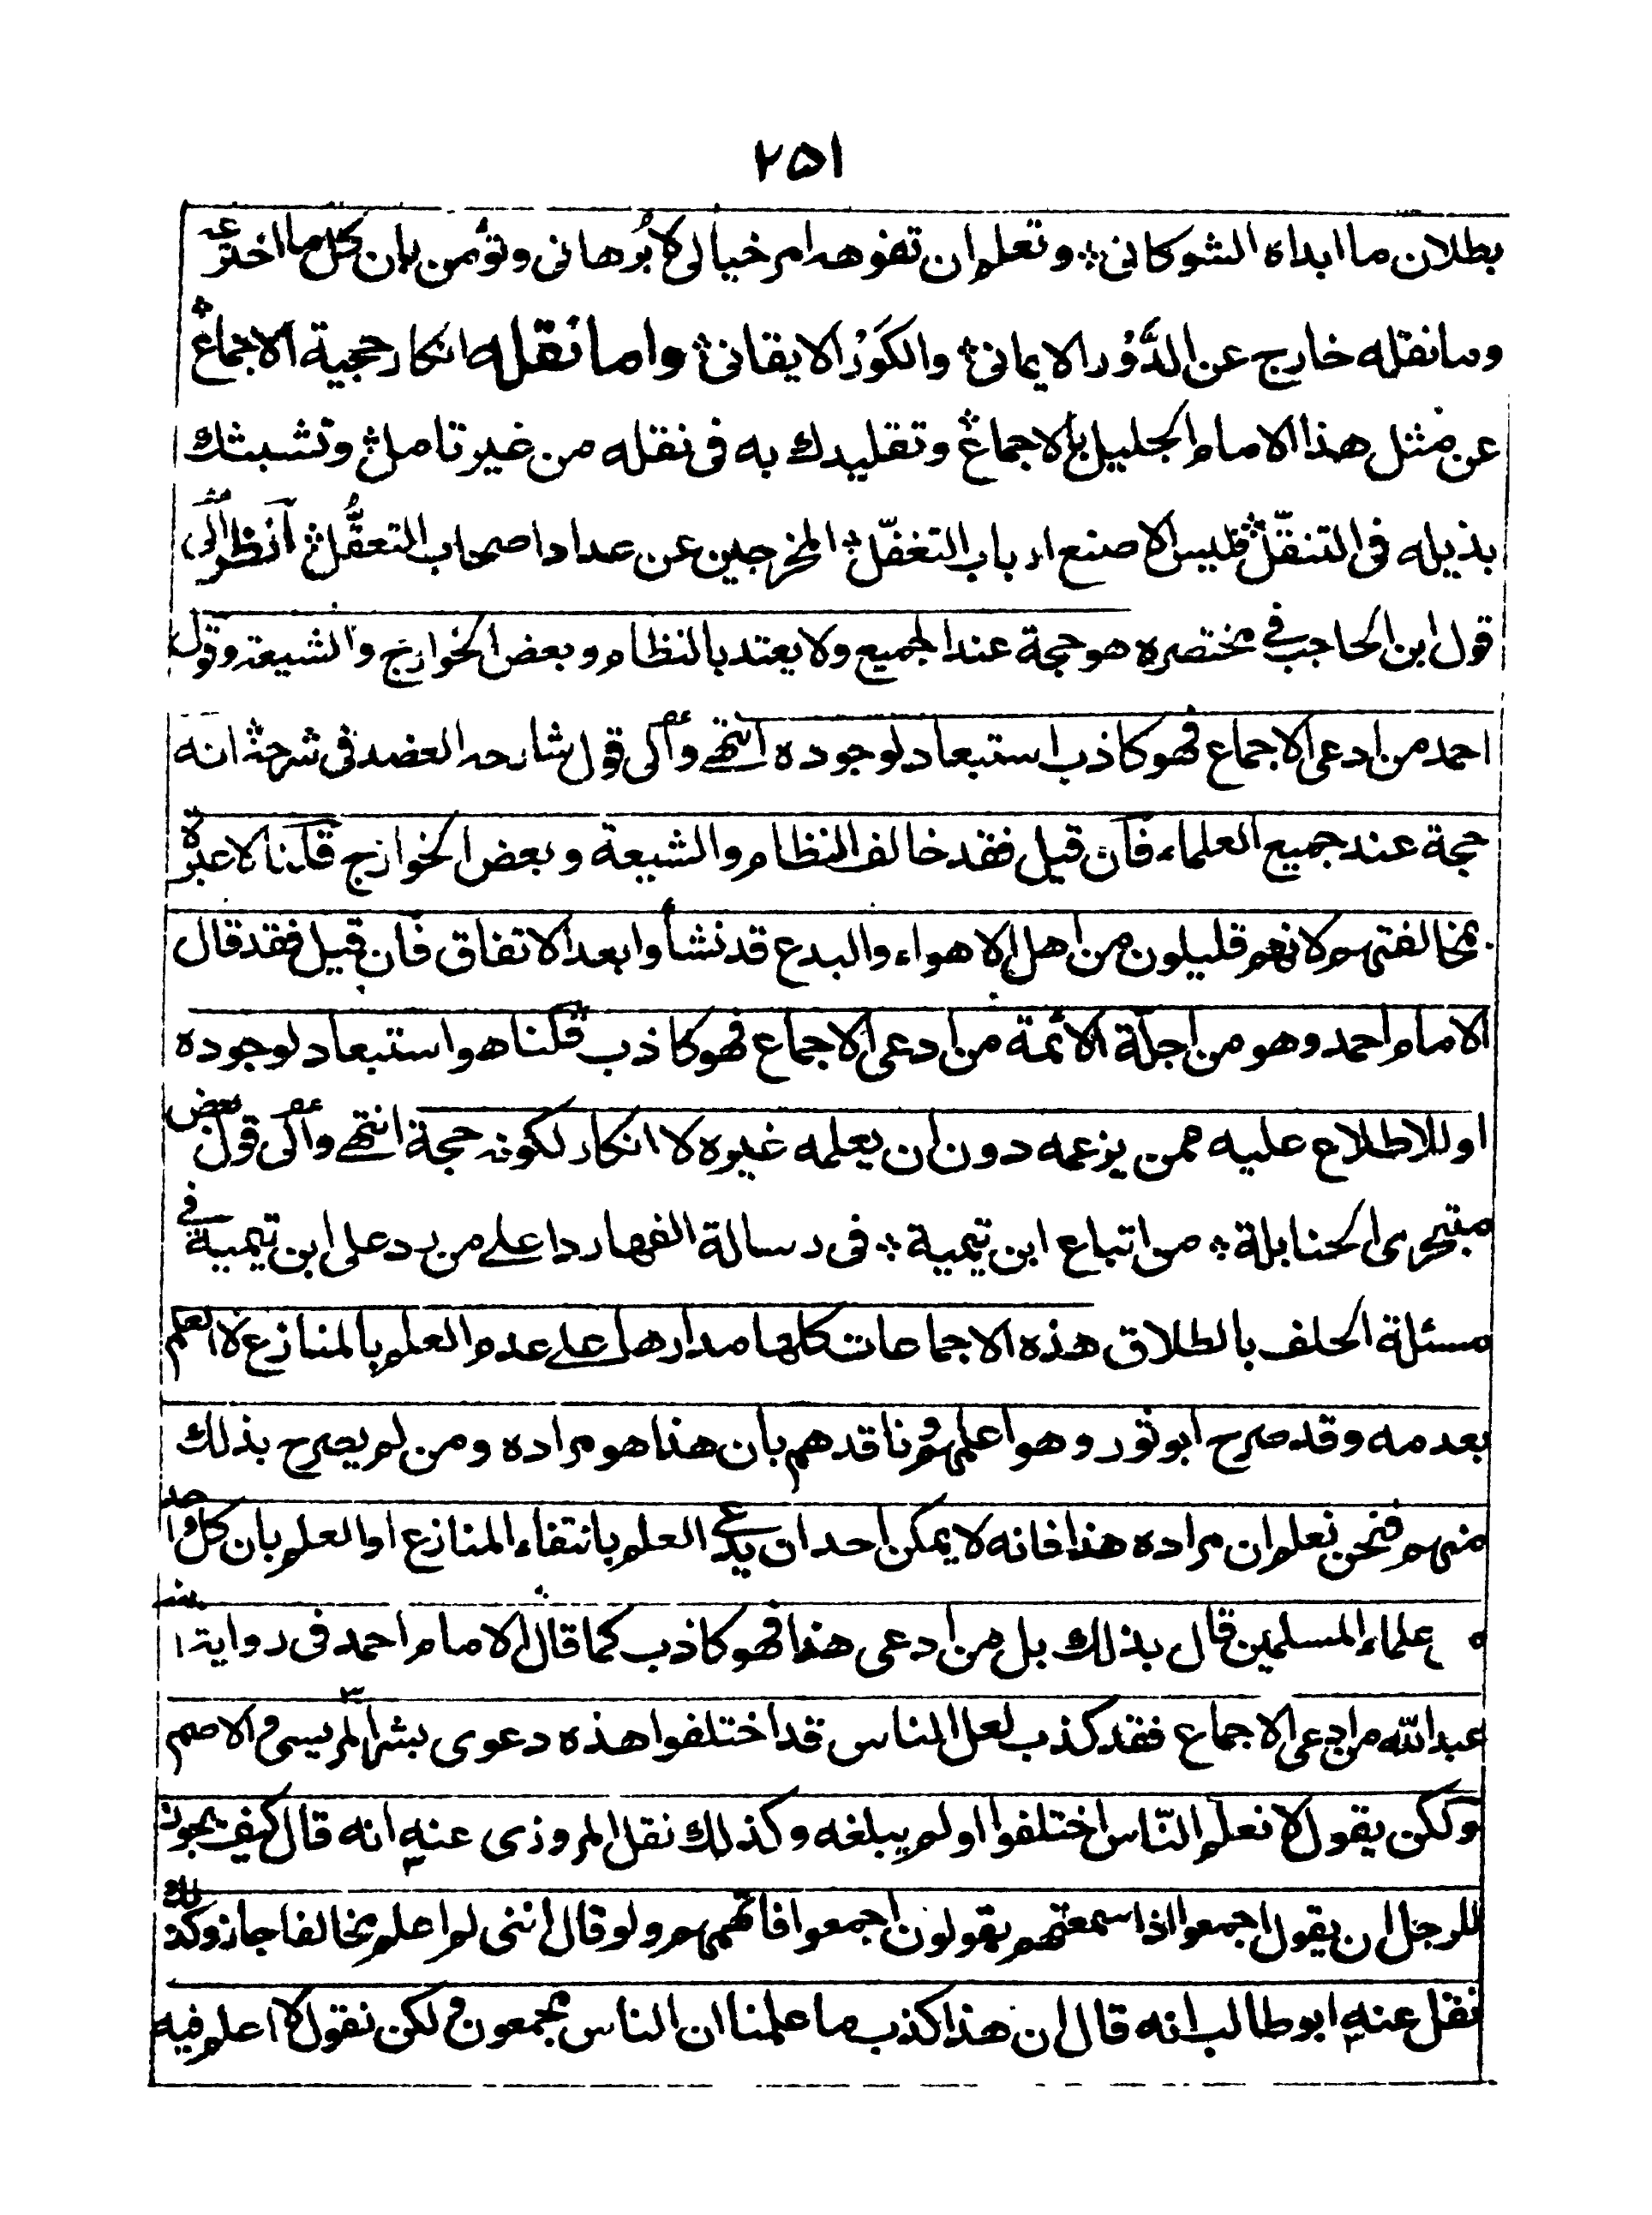 ٢٥١
بطلان ما ابداه الشوكانى؞ وتعلم ان تفوهه امر خيالى لا بُرهانى وتؤمن بان كل ما اخترعه
وما نقله خارج عن الدَّوْر الايمانى؞ والكَوْر الايقانى؞ واما نقله انكار حجية الاجماع؞
عن مثل هذا الامام الجليل بالاجماع؞ وتقليدك به فى نقله من غير تامل؞ وتشبثك
بذيله فى التنقّل؞ فليس الا صنع ارباب التغفّل؞ المخرجين عن عداد اصحاب التعقُّل؞ انظر الى
قول ابن الحاجب فى مختصره هو حجة عند الجميع ولا يعتد بالنظام وبعض الخوارج والشيعة وقول
احمد من ادعى الاجماع فهو كاذب استبعاد لوجوده انتهى والى قول شارحه العضد فى شرحه انه
حجة عند جميع العلماء فان قيل فقد خالف النظام والشيعة وبعض الخوارج قلنا لا عبرة
بمخالفتهم لانهم قليلون من اهل الاهواء والبدع قد نشأوا بعد الاتفاق فان قيل فقد قال
الامام احمد وهو من اجلة الائمة من ادعى الاجماع فهو كاذب قلنا هو استبعاد لوجوده
او للاطلاع عليه ممن يزعمه دون ان يعلمه غيره لا انكار لكونه حجة انتهى والى قول بعض
متبحرى الحنابلة؞ من اتباع ابن تيمية؞ فى رسالة الفها ردا على من رد على ابن تيمية فى
مسئلة الحلف بالطلاق هذه الاجماعات كلها مدارها على عدم العلم بالمنازع لا العلم
بعدمه وقد صرح ابو ثور وهو اعلمهم وناقدهم بان هذا هو مراده ومن لم يصرح بذلك
منهم فنحن نعلم ان مراده هذا فانه لا يمكن احد ان يدعى العلم بانتفاء المنازع او العلم بان كل واحد
علماء المسلمين قال بذلك بل من ادعى هذا فهو كاذب كما قال الامام احمد فى رواية
عبد الله من ادعى الاجماع فقد كذب لعل الناس قد اختلفوا هذه دعوى بشر المريسى والاصم
ولكن يقول لا نعلم النّاس اختلفوا او لم يبلغه وكذلك نقل المروزى عنه انه قال كيف يجوز
للرجل ان يقول اجمعوا اذا سمعتهم يقولون اجمعوا فاتهمهم ولو قال اننى لم اعلم مخالفا جاز وكذلك
نقل عنه ابو طالب انه قال ان هذا كذب ما علمنا ان الناس مجمعون ولكن نقول لا اعلم فيه